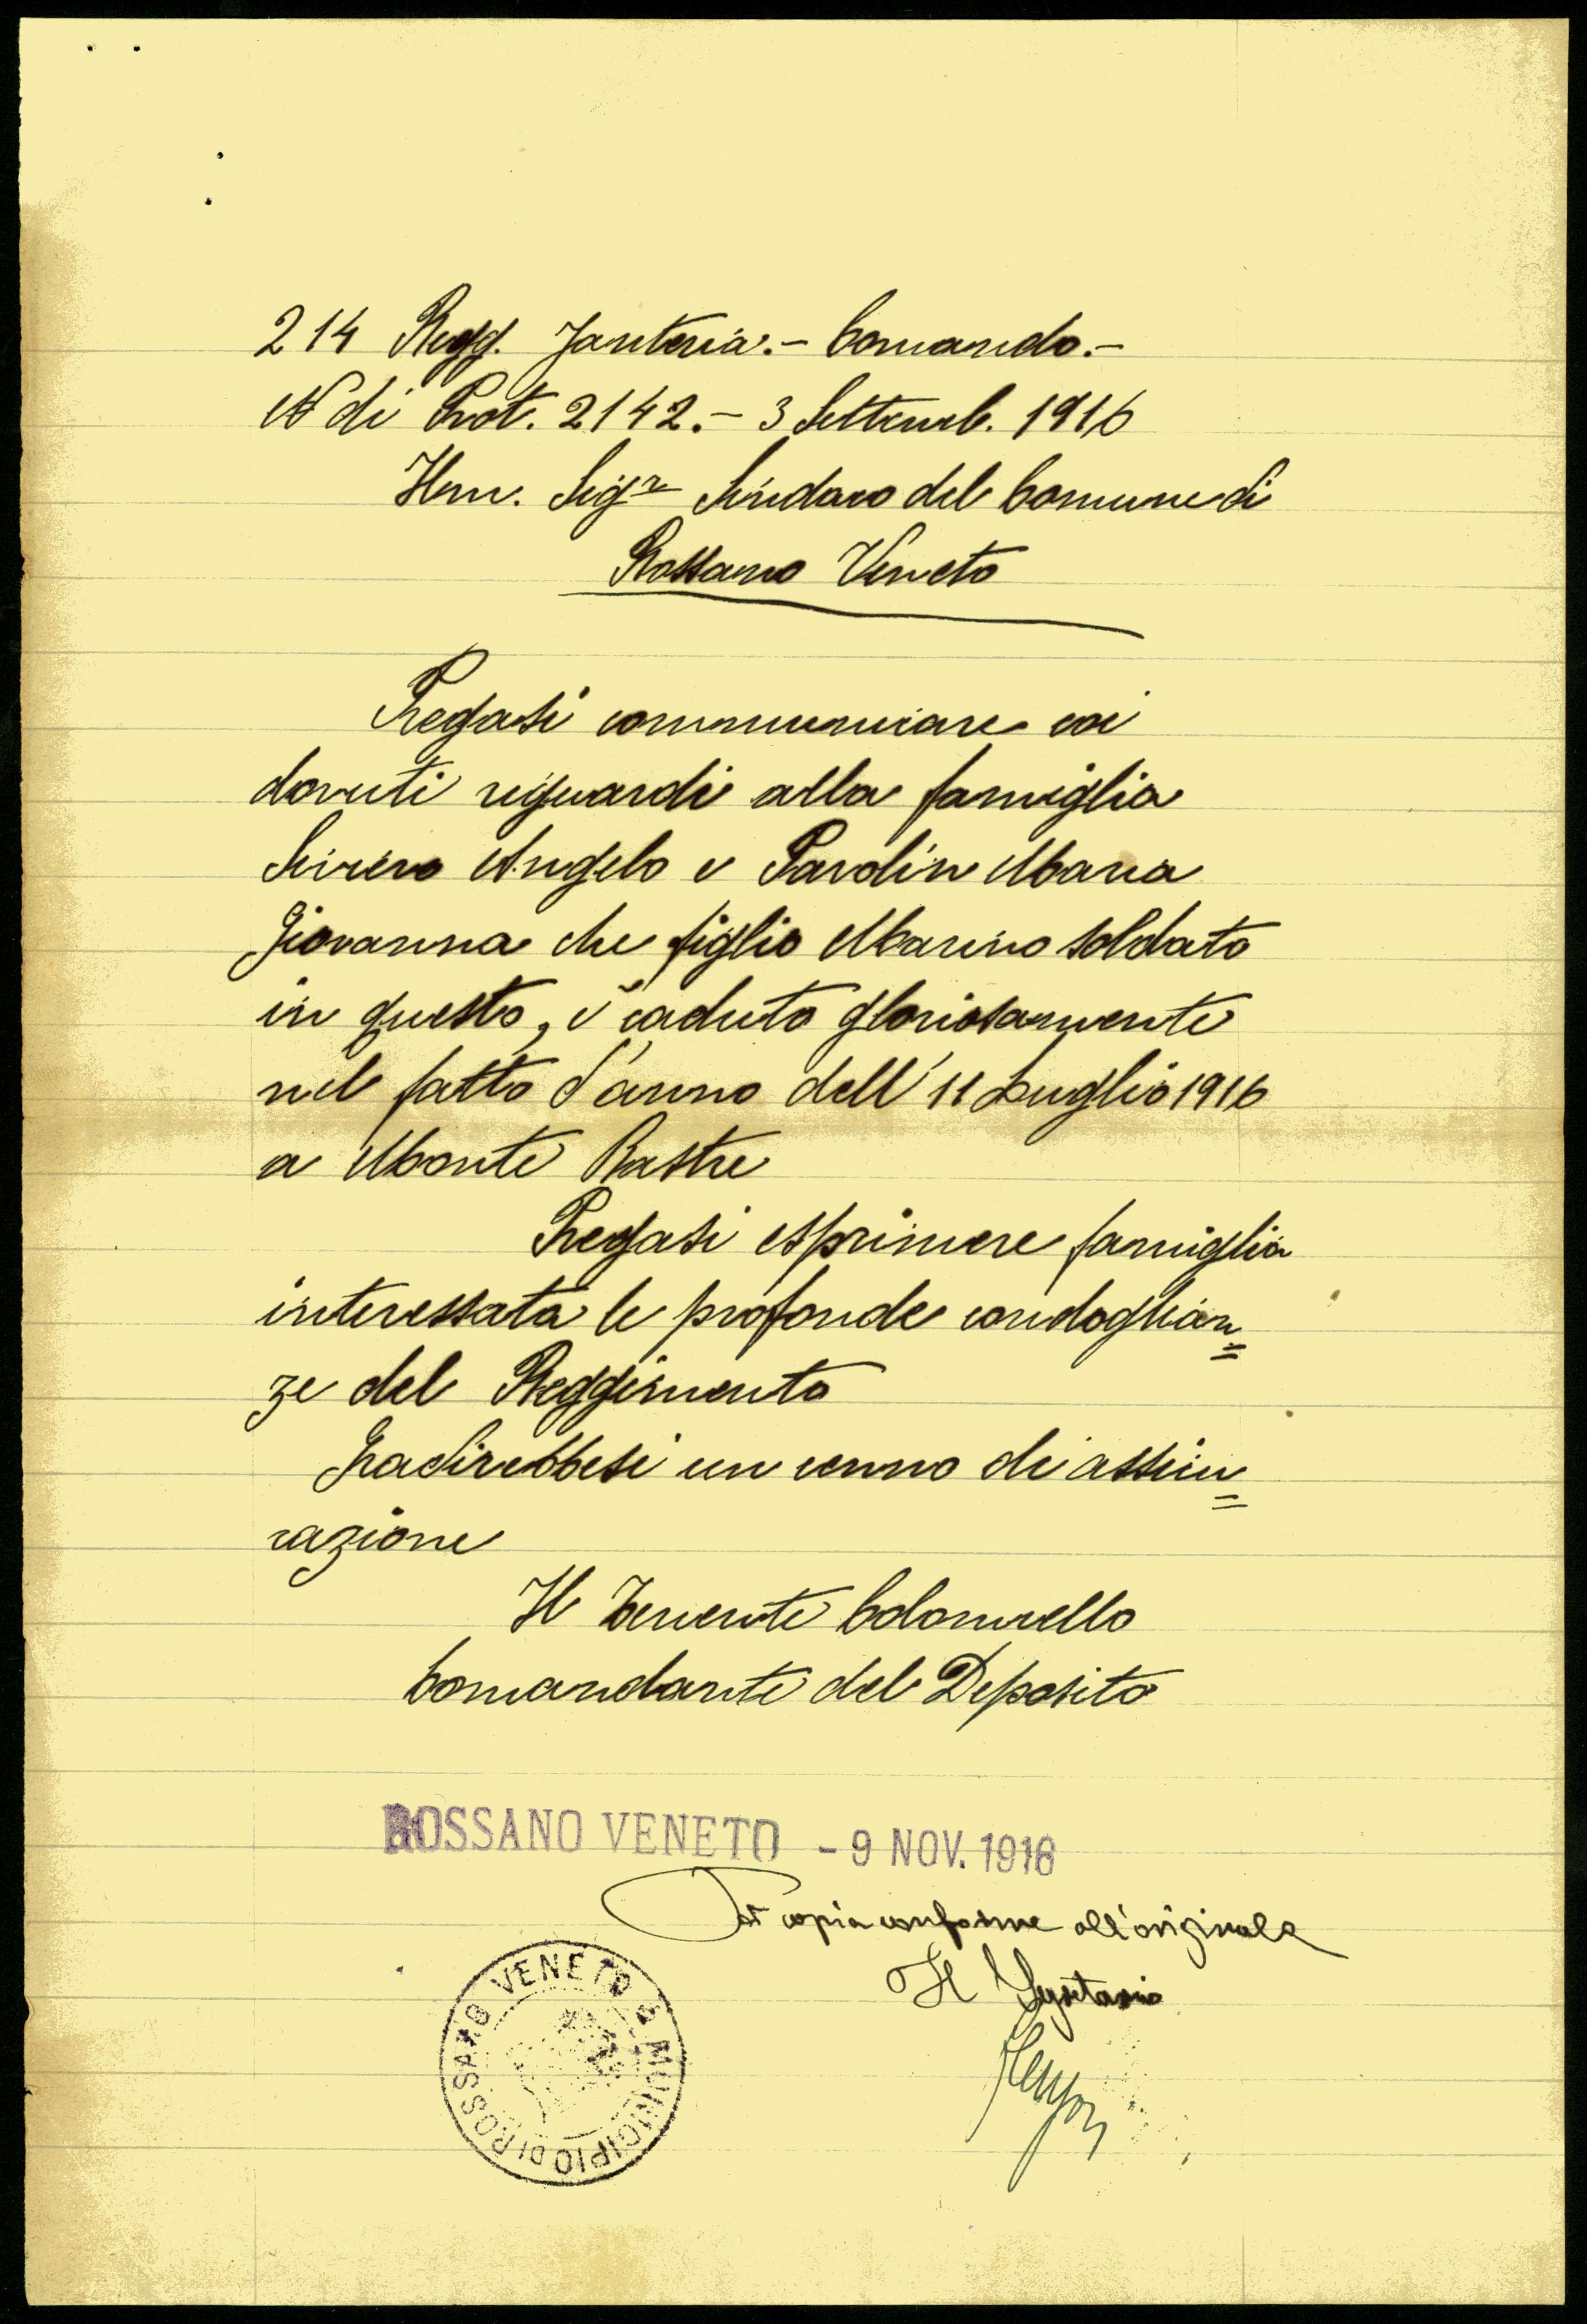 214 Regg. Fanteria.- Comando.-
N di Prot. 2142.- 3 Settemb. 1916
Ill.mo Sigr Sindaco del Comune di
Rossano Veneto
Pregasi communicare coi
dovuti riguardi alla famiglia
Angelo e Maria
Giovanna che figlio Marino soldato
in questo, è caduto gloriosamente
nel fatto d'armo dell' 11 Luglio 1916
a Monte Rastre
Pregasi esprimere famiglia
interessata le profonde condoglian=
ze del Reggimento
Gradirebbesi un cenno di assicu=
razione
Il Tenente Colonnello
Comandante del Deposito
ROSSANO VENETO - 9 NOV. 1916
copia conforme all'originale
Il Segretario
MUNICIPIO DI ROSSANO VENETO